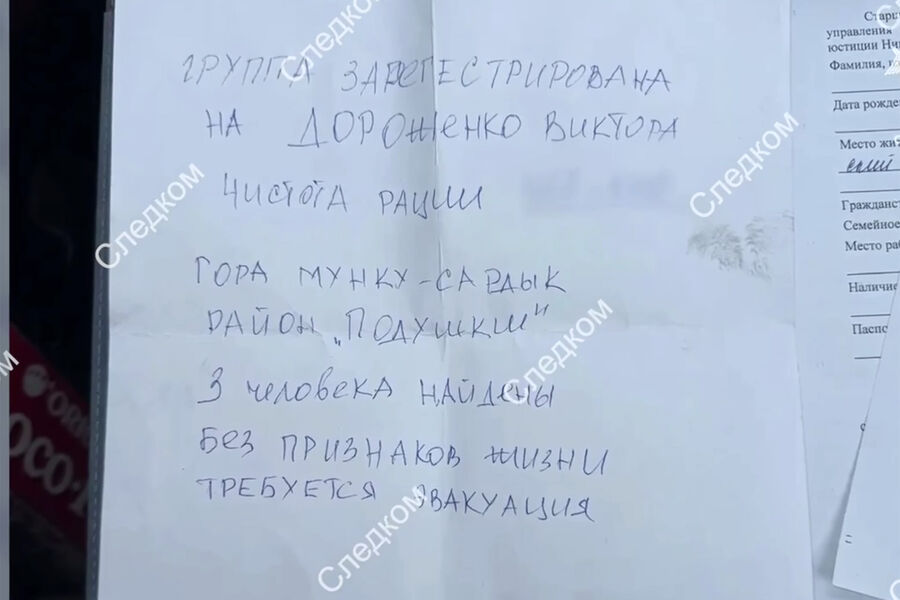 ГРУППА ЗАРЕГЕСТРИРОВАНА
НА ДОРОЖЕНКО ВИКТОРА
ЧИСТОТА РАЦИИ
ГОРА МУНКУ-САРДЫК
РАЙОН „ПОДУШКИ"
3 человека найдены
БЕЗ ПРИЗНАКОВ ЖИЗНИ
ТРЕБУЕТСЯ ЭВАКУАЦИЯ
Следком
Следком
Следком
Следком
Следком
управления
юстиции
Фамилия,
Дата
Место
Семейное
Место